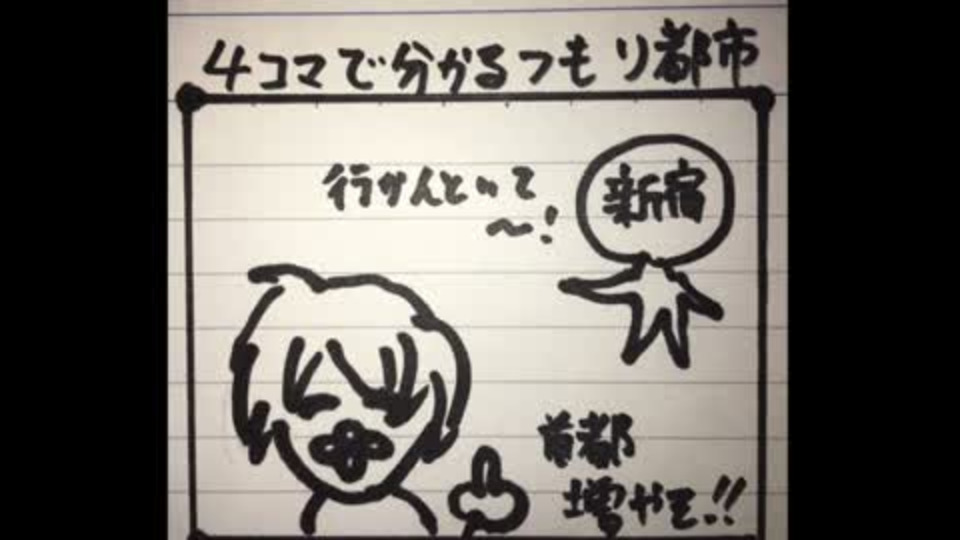 4コマで分かるつもり都市
新宿
行かんといて
〜!
首都
増やそ!!